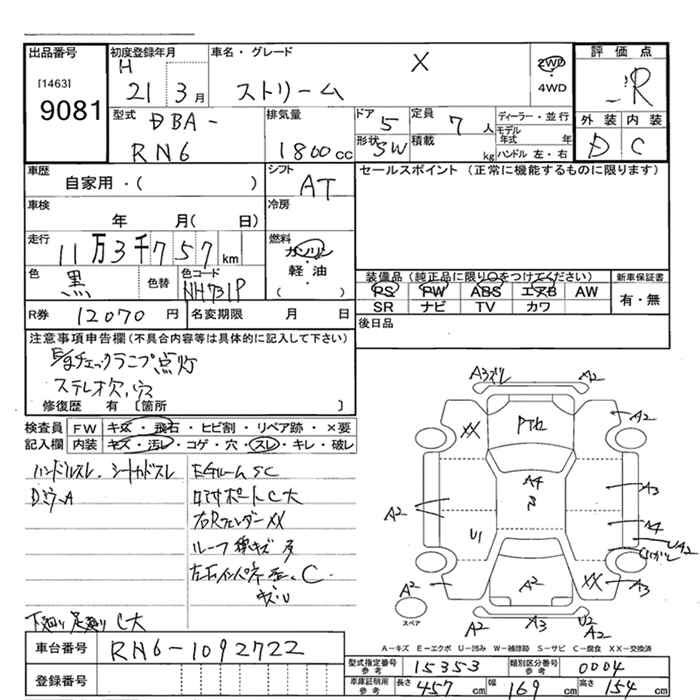 出品番号 初度登録年月 車名・グレード 評価点
[1463] H X 2WD
9081 21 3月 ストリーム 4WD R
型式 DBA- 排気量 ドア 5 定員 7人 ディーラー・並行 外装 内装
RN6 1800cc 形状 SW 積載 kg モデル年式 年 D C
ハンドル左・右
車歴 シフト セールスポイント (正常に機能するものに限ります)
自家用・( ) AT
車検 冷房
年 月( 日)
走行 11万3千757km 燃料
ガソリン
色 黒 色替 色コード NH731P 軽油
( )
装備品(純正品に限り〇をつけてください) 新車保証書
PS PW ABS エアB AW 有・無
SR ナビ TV カワ
R券 12070円 名変期限 月 日 後日品
注意事項申告欄(不具合内容等は具体的に記入して下さい)
E/gチェックランプ点灯
ステレオ欠、穴
修復歴 有 〔箇所 〕
検査員 FW キズ・飛石・ヒビ割・リペア跡・×要
記入欄 内装 キズ・汚レ・コゲ・穴・スレ・キレ・破レ
ハンドルスレ、シートカドスレ Eグルーム SC
DラクA
右Rフェンダー XX
下廻り足廻り C大
A3ズレ A2
XX PTR A2
A4
A3
A2 A4
U1 UA2
A2 A2 XX A3
スペア A2 A3 U2
A2
A-キズ E-エクボ U-凹み W-補修跡 S-サビ C-腐食 XX-交換済
車台番号 RN6-1092722
型式指定番号 参考 15353 類別区分番号 参考 0004
登録番号
車庫証明用 参考 長さ 457cm 幅 169cm 高さ 154cm